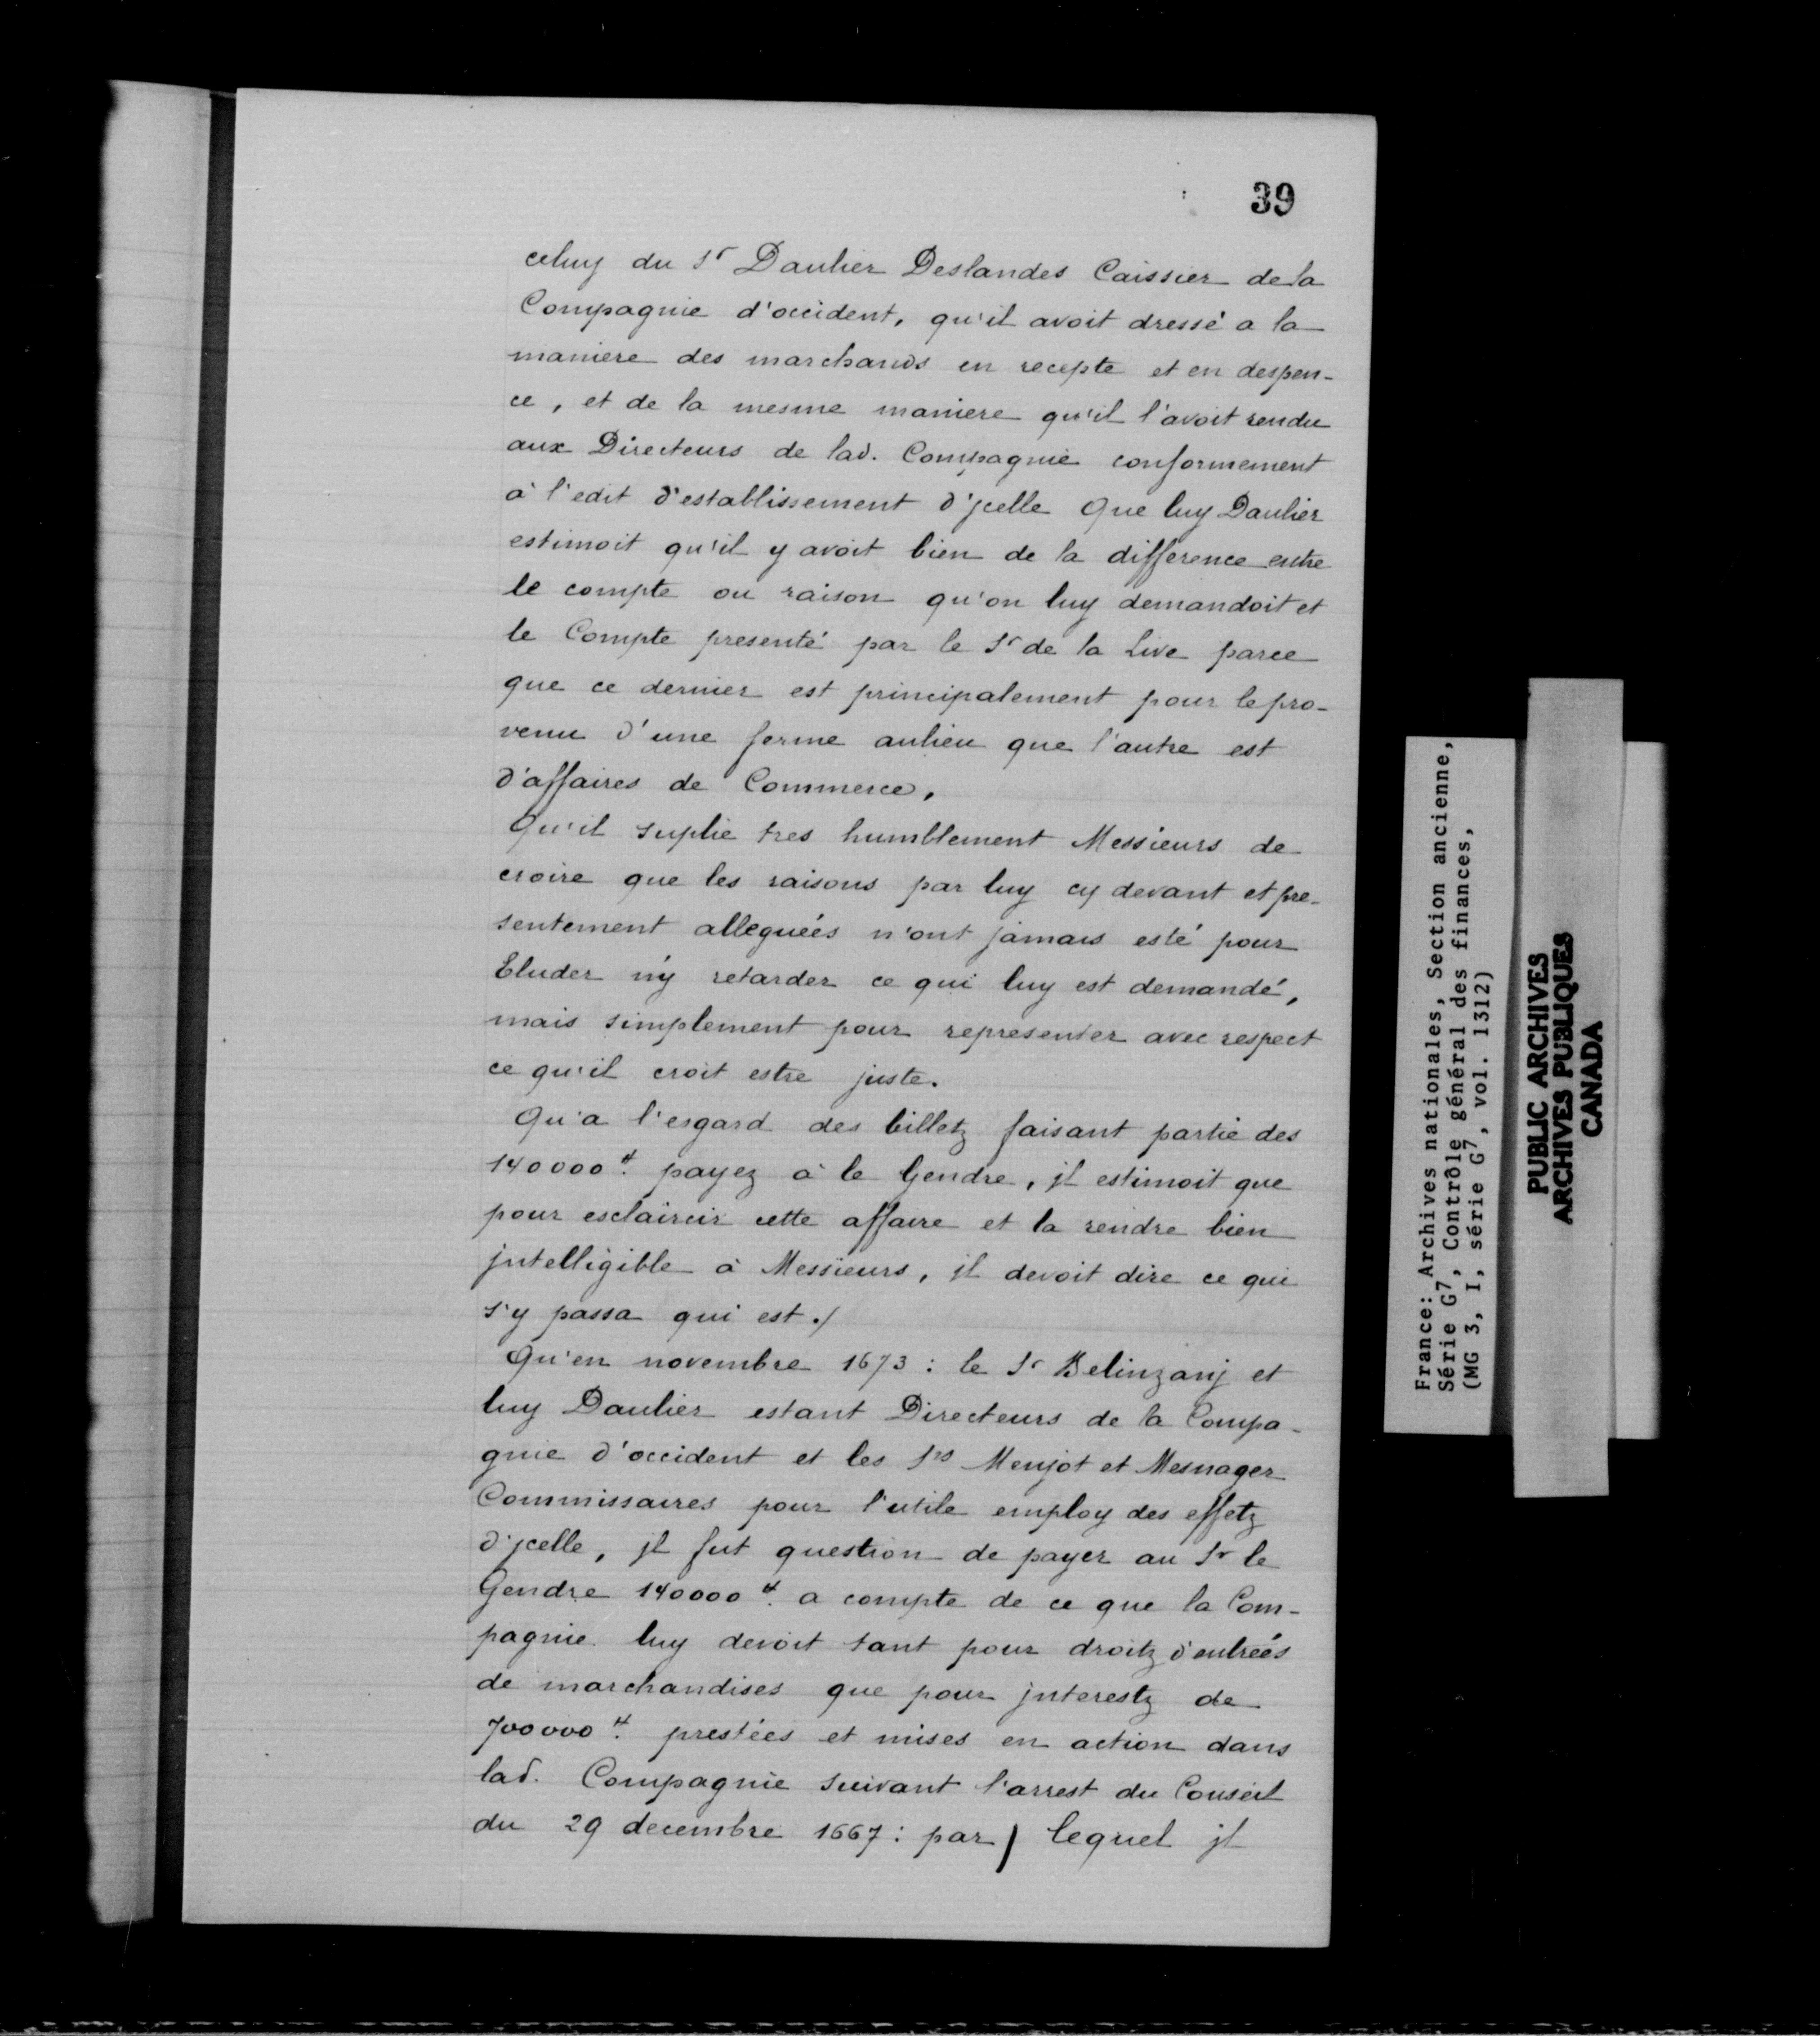 39
celuy du Sr Daulier Deslandes Caissier de la
Compagnie d'occident, qu'il avoit dressé a la
maniere des marchands en recepte et en despen-
ce, et de la mesme maniere qu'il l'avoit rendu
aux Directeurs de lad. Compagnie conformement
à l'edit d'establissement d'jcelle Que luy Daulier
estimoit qu'il y avoit bien de la difference entre
le compte ou raison qu'on luy demandoit et
le Compte presenté par le Sr de la Live parce
que ce dernier est principalement pour le pro-
venu d'une ferme aulieu que l'autre est
d'affaires de Commerce,
Qu'il suplie tres humblement Messieurs de
croire que les raisons par luy cy devant et pre-
sentement alleguéés n'ont jamais esté pour
Eluder n'y retarder ce qui luy est demandé,
mais simplement pour representer avec respect
ce qu'il croit estre juste.
Qu'a l'esgard des billetz faisant partie des
140000 ₶. payez à le Gendre, jl estimoit que
pour esclaircir cette affaire et la rendre bien
jntelligible à Messieurs, jl devoit dire ce qui
s'y passa qui est ./
Qu'en novembre 1673 : le Sr Belinzanj et
luy Daulier estant Directeurs de la Compa-
gnie d'occident et les Srs Menjot et Mesnager
Commissaires pour l'utile employ des effetz
d'jcelle, jl fut question de payer au Sr le
Gendre 140000 ₶. a compte de ce que la Com-
pagnie luy devoit tant pour droitz d'entréés
de marchandises que pour jnterestz de
700000 ₶. prestéés et mises en action dans
lad. Compagnie suivant l'arrest du Conseil
du 29 decembre 1667 : par / lequel jl
France: Archives nationales, Section ancienne,
Série G7, Contrôle général des finances,
(MG 3, I, série G7, vol. 1312)
PUBLIC ARCHIVES
ARCHIVES PUBLIQUES
CANADA